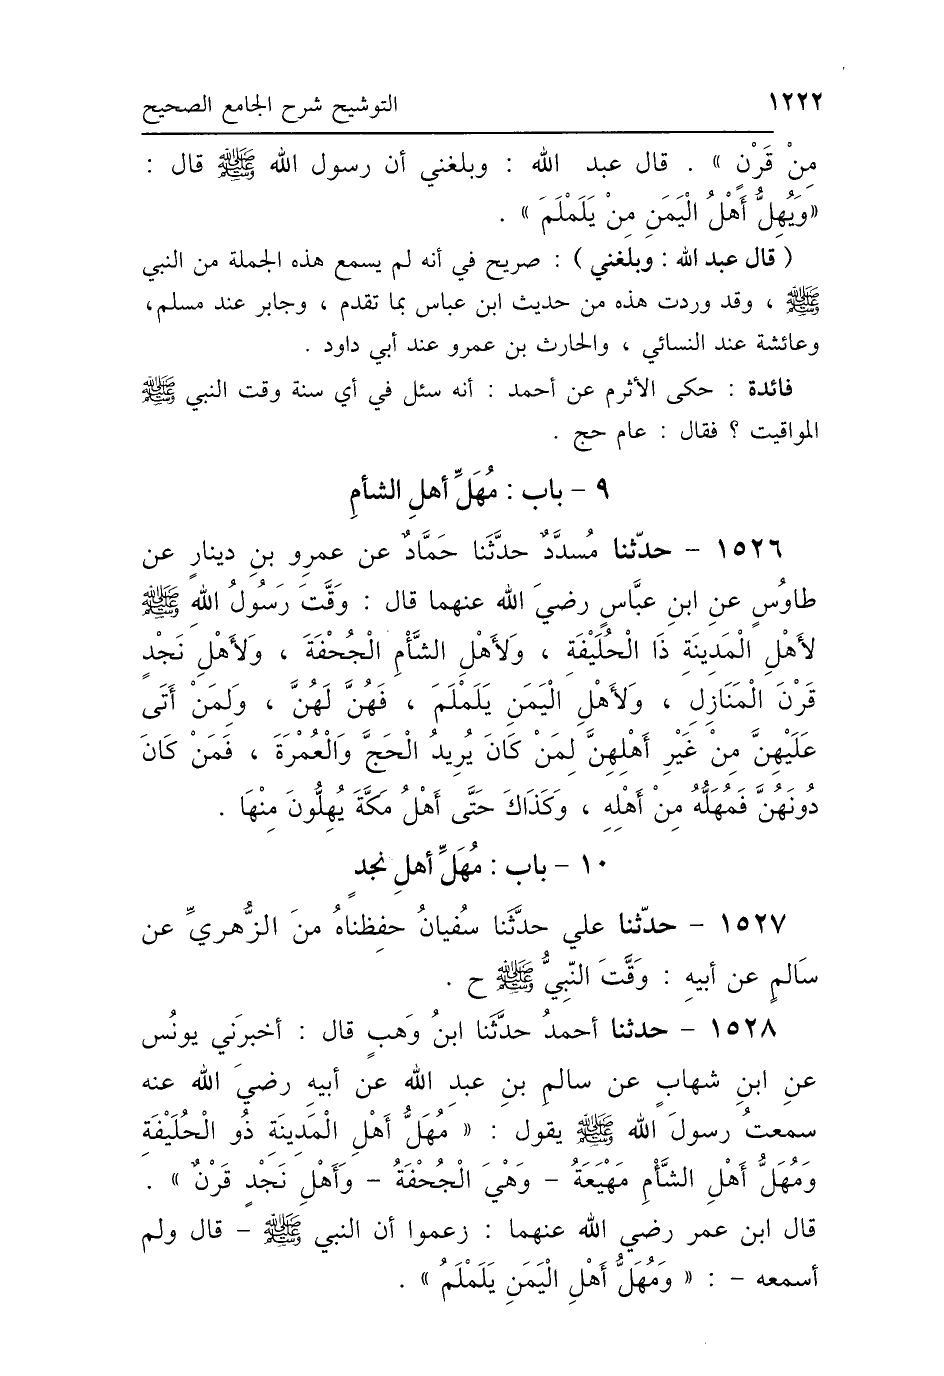 ١٢٢٢ التوشيح شرح الجامع الصحيح
مِنْ قَرْنٍ » . قال عبد الله : وبلغني أن رسول الله ﷺ قال :
«وَيُهِلُّ أَهْلُ الْيَمَنِ مِنْ يَلَمْلَمَ » .
( قال عبد الله : وبلغني ) : صريح في أنه لم يسمع هذه الجملة من النبي
ﷺ ، وقد وردت هذه من حديث ابن عباس بما تقدم ، وجابر عند مسلم،
وعائشة عند النسائي ، والحارث بن عمرو عند أبي داود .
فائدة : حكى الأثرم عن أحمد : أنه سئل في أي سنة وقت النبي ﷺ
المواقيت ؟ فقال : عام حج .
٩ - باب : مُهَلِّ أهلِ الشأمِ
١٥٢٦ - حدّثنا مُسدَّدٌ حدَّثَنا حَمَّادٌ عن عمرِو بنِ دينارٍ عن
طاوُسٍ عنِ ابنِ عبَّاسٍ رضيَ الله عنهما قال : وَقَّتَ رَسُولُ اللهِ ﷺ
لأَهْلِ الْمَدِينَةِ ذَا الْحُلَيْفَةِ ، وَلأَهْلِ الشَّأْمِ الْجُحْفَةَ ، وَلأَهْلِ نَجْدٍ
قَرْنَ الْمَنَازِلِ ، وَلأَهْلِ الْيَمَنِ يَلَمْلَمَ ، فَهُنَّ لَهُنَّ ، وَلِمَنْ أَتَى
عَلَيْهِنَّ مِنْ غَيْرِ أَهْلِهِنَّ لِمَنْ كَانَ يُرِيدُ الْحَجَّ وَالْعُمْرَةَ ، فَمَنْ كَانَ
دُونَهُنَّ فَمُهَلُّهُ مِنْ أَهْلِهِ ، وَكَذَاكَ حَتَّى أَهْلُ مَكَّةَ يُهِلُّونَ مِنْهَا .
١٠ - باب : مُهَلِّ أهلِ نجدٍ
١٥٢٧ - حدّثنا علي حدَّثَنا سُفيانُ حفِظناهُ منَ الزُّهريِّ عن
سَالمٍ عن أبيهِ : وَقَّتَ النّبيُّ ﷺ ح .
١٥٢٨ - حدثنا أحمدُ حدَّثَنا ابنُ وَهبٍ قال : أخبرَني يونُس
عنِ ابنِ شهابٍ عن سالمِ بنِ عبدِ الله عن أبيهِ رضيَ الله عنه
سمعتُ رسولَ الله ﷺ يقول : « مُهَلُّ أَهْلِ الْمَدِينَةِ ذُو الْحُلَيْفَةِ
وَمُهَلُّ أَهْلِ الشَّأْمِ مَهْيَعَةُ - وَهْيَ الْجُحْفَةُ - وَأَهْلِ نَجْدٍ قَرْنٌ » .
قال ابن عمر رضي الله عنهما : زعموا أن النبي ﷺ - قال ولم
أسمعه - : « وَمُهَلُّ أَهْلِ الْيَمَنِ يَلَمْلَمُ » .